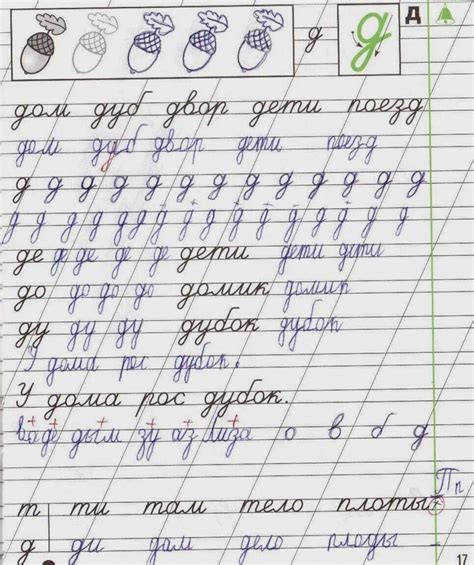 д д Д
дом дуб двор дети поезд
дом дуб двор дети поезд
д д д д д д д д д д д д д д
д д д д д д д д д д д д д д д д д
де де де де де дети дети дети
до до до до домик домик
ду ду ду дубок дубок
У дома рос дубок.
У дома рос дубок.
ва де дым зу аз лиза о в б д
Пп
т ти там тело плоты
д ди дам дело плоды
17